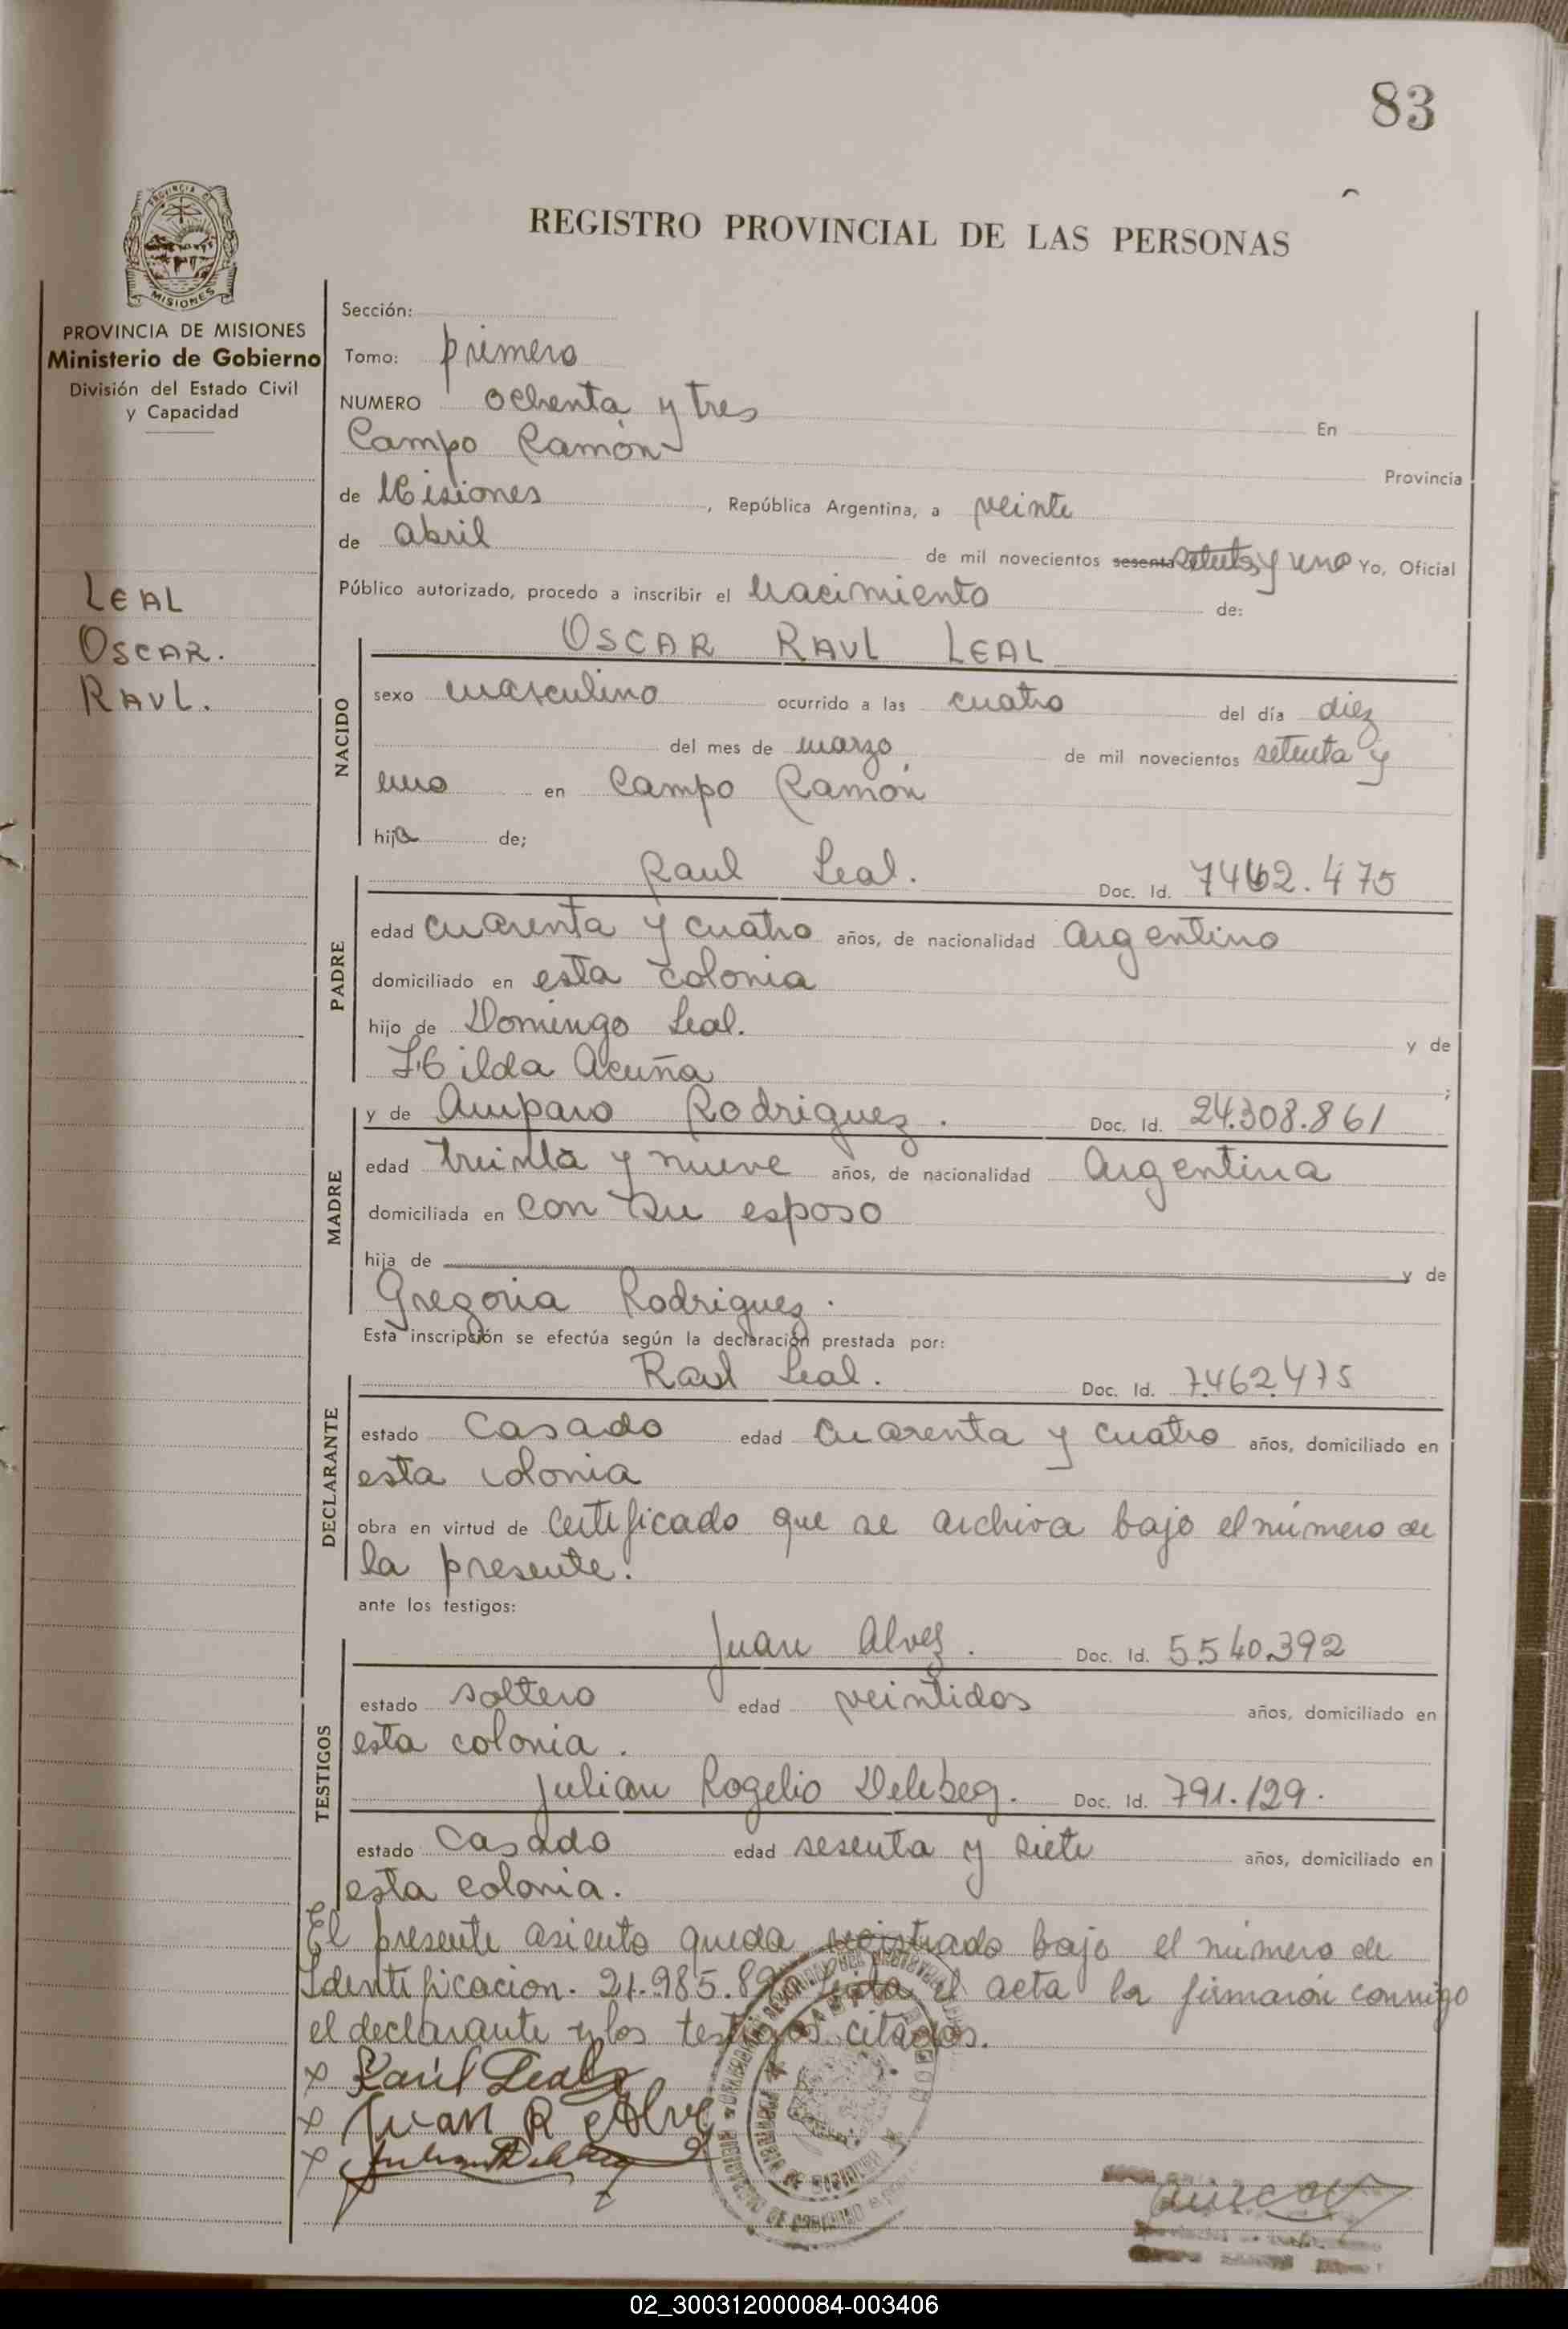 83
REGISTRO PROVINCIAL DE LAS PERSONAS
PROVINCIA DE
MISIONES
PROVINCIA DE MISIONES
Ministerio de Gobierno
División del Estado Civil
y Capacidad
LEAL
OSCAR.
RAUL.
Sección:
Tomo: primero
NUMERO ochenta y tres En
Campo Ramón Provincia
de Misiones, República Argentina, a veinte
de abril de mil novecientos sesenta setenta y uno Yo, Oficial
Público autorizado, procedo a inscribir el Nacimiento de:
NACIDO
OSCAR RAUL LEAL
sexo masculino ocurrido a las cuatro del día diez
del mes de marzo de mil novecientos setenta y
uno en Campo Ramón
hijo de;
PADRE
Raul Leal. Doc. Id. 7462.475
edad cuarenta y cuatro años, de nacionalidad Argentino
domiciliado en esta colonia
hijo de Domingo Leal. y de
Hilda Acuña ;
MADRE
y de Amparo Rodriguez. Doc. Id. 24.308.861
edad treinta y nueve años, de nacionalidad Argentina
domiciliada en con su esposo
hija de y de
Gregoria Rodriguez.
Esta inscripción se efectúa según la declaración prestada por:
DECLARANTE
Raul Leal. Doc. Id. 7.462.475
estado Casado edad cuarenta y cuatro años, domiciliado en
esta colonia
obra en virtud de certificado que se archiva bajo el número de
la presente.
ante los testigos:
TESTIGOS
Juan Alvez. Doc. Id. 5.540.392
estado soltero edad veintidos años, domiciliado en
esta colonia.
Julian Rogelio Doc. Id. 791.129.
estado Casado edad sesenta y siete años, domiciliado en
esta colonia.
El presente asiento queda registrado bajo el número de
Identificacion. 21.985.89 Leida el acta la firmaron conmigo
el declarante y los testigos citados.
x Raúl Leal
x Juan R Alve
x
02_300312000084-003406